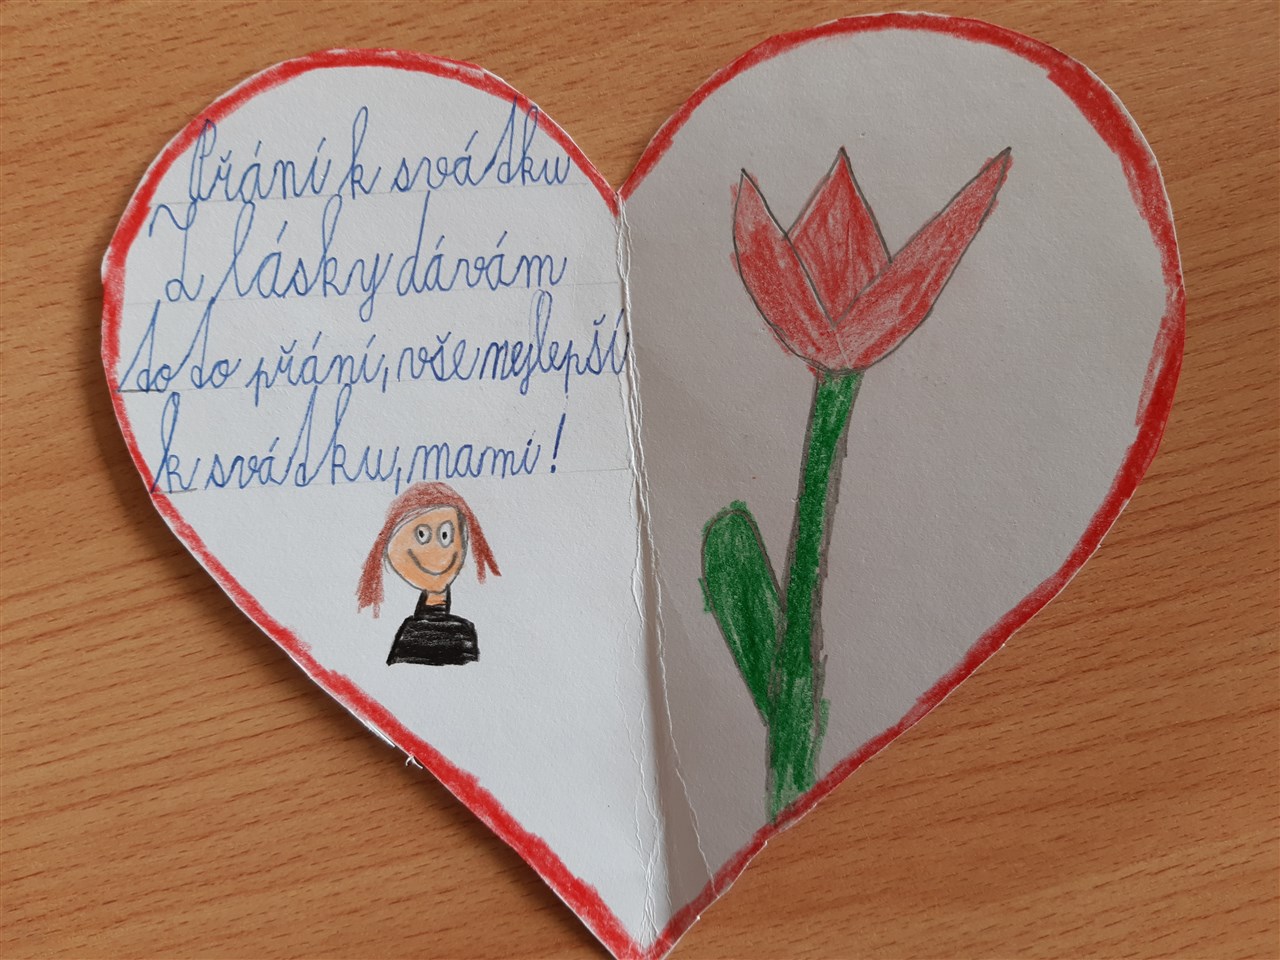 Přání k svátku
Z lásky dávám
toto přání, vše nejlepší
k svátku, mami!